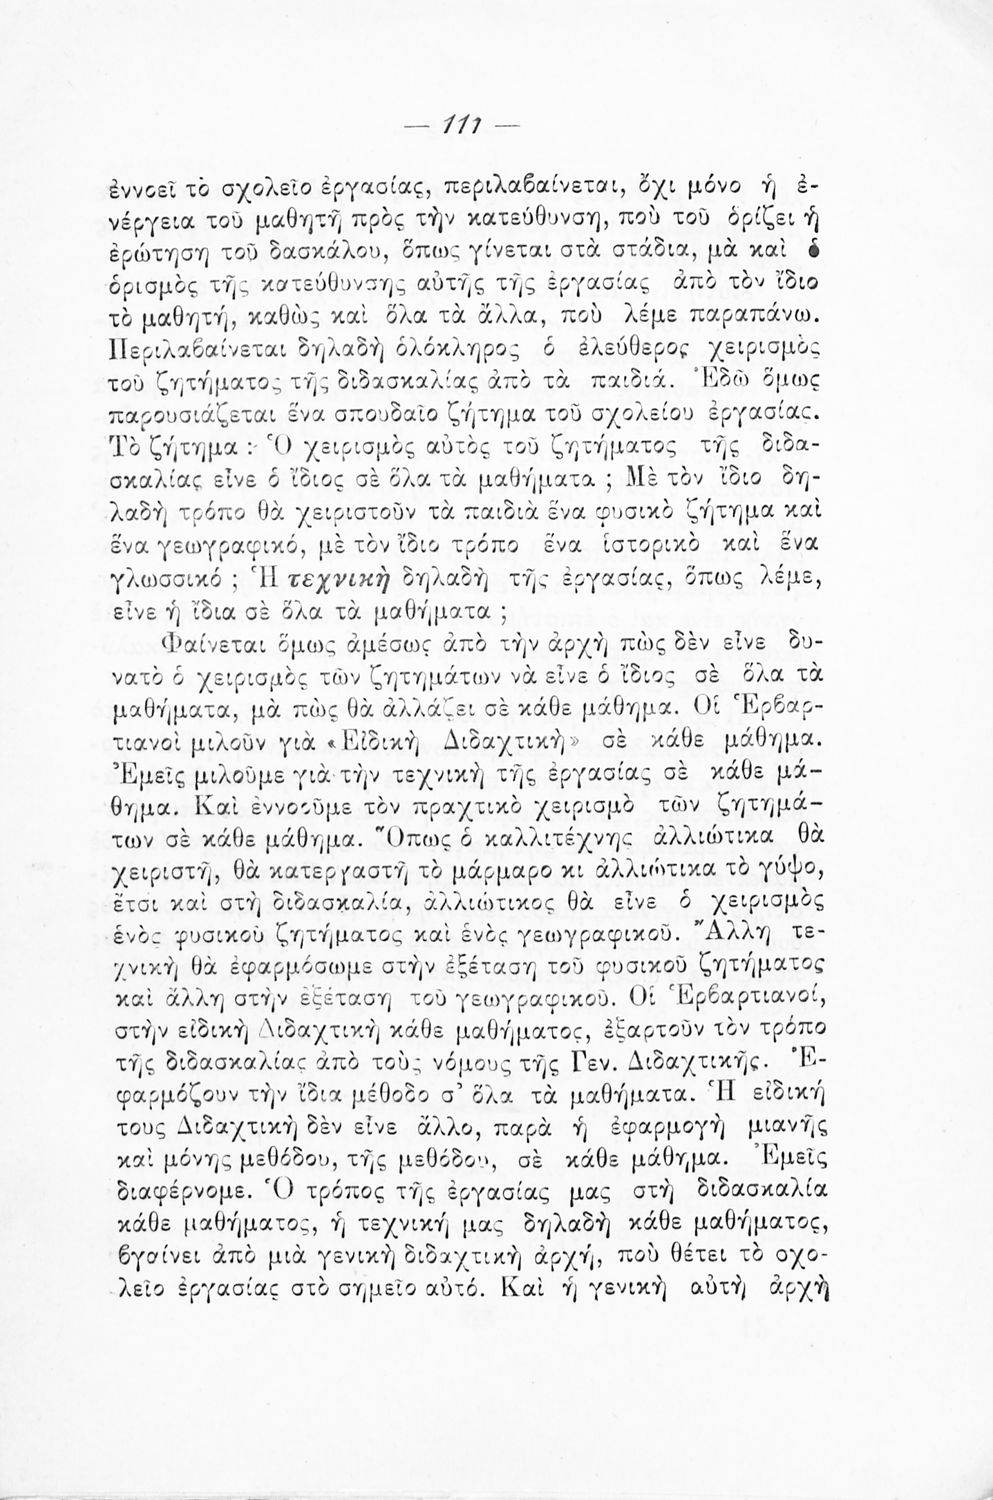 — 111 —
ἐννοεῖ τὸ σχολεῖο ἐργασίας, περιλαβαίνεται, ὄχι μόνο ἡ ἐ-
νέργεια τοῦ μαθητῆ πρὸς τὴν κατεύθυνση, ποὺ τοῦ ὁρίζει ἡ
ἐρώτηση τοῦ δασκάλου, ὅπως γίνεται στὰ στάδια, μὰ καὶ ὁ
ὁρισμὸς τῆς κατεύθυνσης αὐτῆς τῆς ἐργασίας ἀπὸ τὸν ἴδιο
τὸ μαθητή, καθὼς καὶ ὅλα τὰ ἄλλα, ποὺ λέμε παραπάνω.
Περιλαβαίνεται δηλαδὴ ὁλόκληρος ὁ ἐλεύθερος χειρισμὸς
τοῦ ζητήματος τῆς διδασκαλίας ἀπὸ τὰ παιδιά. Ἐδῶ ὅμως
παρουσιάζεται ἕνα σπουδαῖο ζήτημα τοῦ σχολείου ἐργασίας.
Τὸ ζήτημα :- Ὁ χειρισμὸς αὐτὸς τοῦ ζητήματος τῆς διδα-
σκαλίας εἶνε ὁ ἴδιος σὲ ὅλα τὰ μαθήματα ; Μὲ τὸν ἴδιο δη-
λαδὴ τρόπο θὰ χειριστοῦν τὰ παιδιὰ ἕνα φυσικὸ ζήτημα καὶ
ἕνα γεωγραφικό, μὲ τὸν ἴδιο τρόπο ἕνα ἱστορικὸ καὶ ἕνα
γλωσσικό ; Ἡ τεχνικὴ δηλαδὴ τῆς ἐργασίας, ὅπως λέμε,
εἶνε ἡ ἴδια σὲ ὅλα τὰ μαθήματα ;
Φαίνεται ὅμως ἀμέσως ἀπὸ τὴν ἀρχὴ πὼς δὲν εἶνε δυ-
νατὸ ὁ χειρισμὸς τῶν ζητημάτων νὰ εἶνε ὁ ἴδιος σὲ ὅλα τὰ
μαθήματα, μὰ πὼς θὰ ἀλλάζει σὲ κάθε μάθημα. Οἱ Ἑρβαρ-
τιανοὶ μιλοῦν γιὰ «Εἰδικὴ Διδαχτικὴ» σὲ κάθε μάθημα.
Ἐμεῖς μιλοῦμε γιὰ τὴν τεχνικὴ τῆς ἐργασίας σὲ κάθε μά-
θημα. Καὶ ἐννοοῦμε τὸν πραχτικὸ χειρισμὸ τῶν ζητημά-
των σὲ κάθε μάθημα. Ὅπως ὁ καλλιτέχνης ἀλλιώτικα θὰ
χειριστῆ, θὰ κατεργαστῆ τὸ μάρμαρο κι ἀλλιώτικα τὸ γύψο,
ἔτσι καὶ στὴ διδασκαλία, ἀλλιώτικος θὰ εἶνε ὁ χειρισμὸς
ἑνὸς φυσικοῦ ζητήματος καὶ ἑνὸς γεωγραφικοῦ. Ἄλλη τε-
χνικὴ θὰ ἐφαρμόσωμε στὴν ἐξέταση τοῦ φυσικοῦ ζητήματος
καὶ ἄλλη στὴν ἐξέταση τοῦ γεωγραφικοῦ. Οἱ Ἑρβαρτιανοί,
στὴν εἰδικὴ Διδαχτικὴ κάθε μαθήματος, ἐξαρτοῦν τὸν τρόπο
τῆς διδασκαλίας ἀπὸ τοὺς νόμους τῆς Γεν. Διδαχτικῆς. Ἐ-
φαρμόζουν τὴν ἴδια μέθοδο σ' ὅλα τὰ μαθήματα. Ἡ εἰδική
τους Διδαχτικὴ δὲν εἶνε ἄλλο, παρὰ ἡ ἐφαρμογὴ μιανῆς
καὶ μόνης μεθόδου, τῆς μεθόδου, σὲ κάθε μάθημα. Ἐμεῖς
διαφέρνομε. Ὁ τρόπος τῆς ἐργασίας μας στὴ διδασκαλία
κάθε μαθήματος, ἡ τεχνική μας δηλαδὴ κάθε μαθήματος,
βγαίνει ἀπὸ μιὰ γενικὴ διδαχτικὴ ἀρχή, ποὺ θέτει τὸ σχο-
λεῖο ἐργασίας στὸ σημεῖο αὐτό. Καὶ ἡ γενικὴ αὐτὴ ἀρχὴ